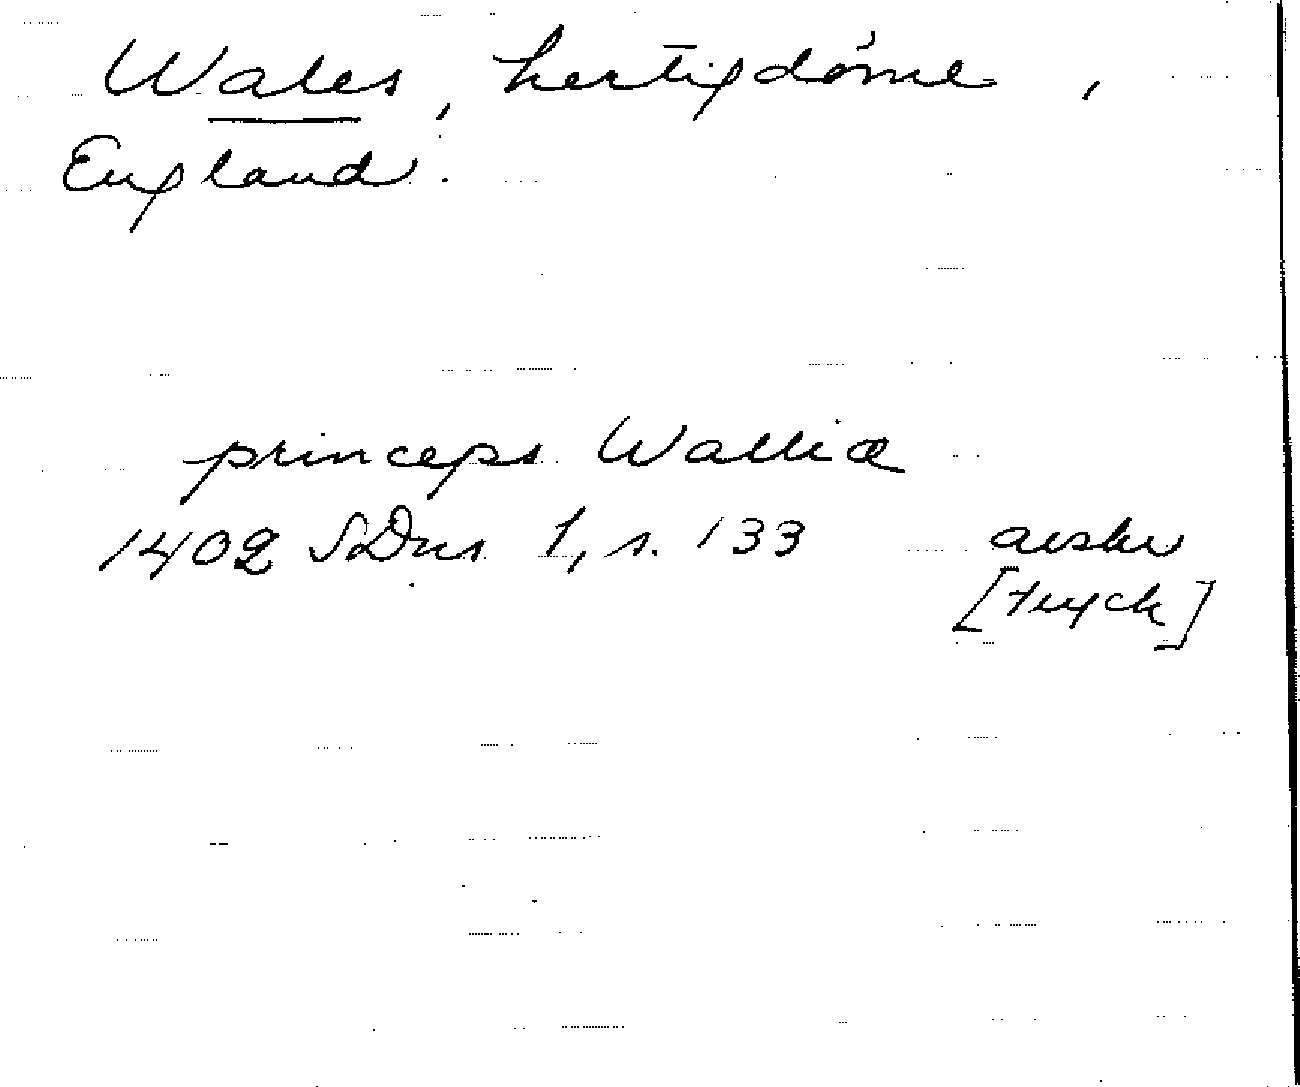 Wales, hertigdöme,
England.
princeps Walliæ
1402 SDns 1, s. 133 avskr
[tryck]